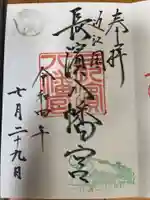 奉拝
近江国
長濱八幡宮
令和四年
七月二十九日